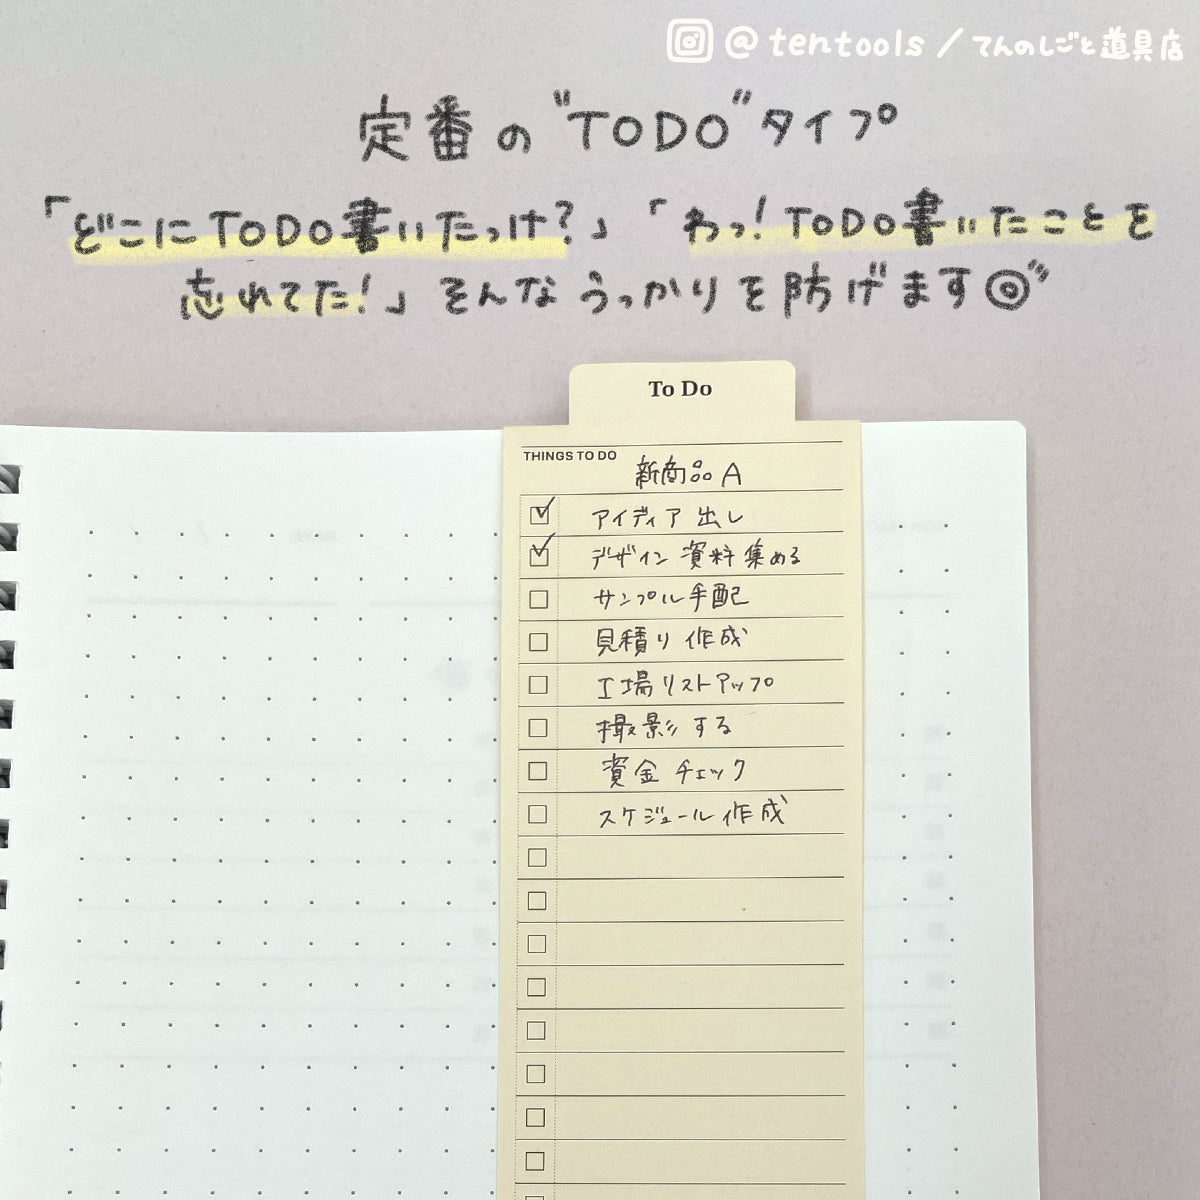 @tentools / てんのしごと道具店
定番の"TODO"タイプ
「どこにTODO書いたっけ?」「わっ!TODO書いたことを
忘れてた!」そんなうっかりを防げます◎"
To Do
THINGS TO DO
新商品A
アイディア出し
デザイン資料集める
サンプル手配
見積り作成
工場リストアップ
撮影する
資金チェック
スケジュール作成